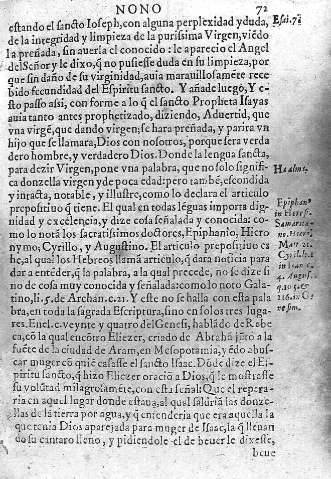 NONO
72
estando el sancto Ioseph, con alguna perplexidad y duda,
de la integridad y limpieza de la purissima Virgen, viēdo
la preñada, sin auerla el conocido: le aparecio el Angel
del Señor y le dixo, q̄ no pusiesse duda en su limpieza, por
que sin daño de su virginidad, auia marauillosamēte rece
bido fecundidad del Espiritu sancto. Y añade luego, Y e-
sto passo assi, con forme a lo q̄ el sancto Propheta Isayas
auia tanto antes prophetizado, diziendo, Aduertid, que
vna virgē, que dando virgen, se hara preñada, y parira vn
hijo que se llamara, Dios con nosotros, porque sera verda
dero hombre, y verdadero Dios. Donde la lengua sancta,
para dezir Virgen, pone vna palabra, que no solo signifi-
ca donzella virgen y de poca edad: pero tambē, escondida
y intacta, notable, y illustre, como lo declara el articulo
prepositiuo q̄ tiene. El qual en todas lēguas importa dig-
nidad y excelencia, y dize cosa señalada y conocida: co-
mo lo notā los sacratissimos doctores, Epiphanio, Hiero
nymo, Cyrillo, y Augustino. El articulo prepositiuo es
he, al qual los Hebreos llamā articulo, q̄ da noticia para
dar a entēder, q̄ la palabra, a la qual precede, no se dize si
no de cosa muy conocida y señalada: como lo noto Gala
tino, li. 5. de Archan. c. 21. Y este no se halla con esta pala
bra, en toda la sagrada Escriptura, sino en solos tres luga-
res. En el c. veynte y quatro del Genesi, hablādo de Robe
ca, cō la qual encōtro Eliezer, criado de Abrahā jūto a la
fuēte de la ciudad de Aram, en Mesopotamia, y ēdo abus-
car muger cō quiē casasse el sancto Isaac. Dōde dize el Es
piritu sancto, q̄ hizo Eliezer oraciō a Dios, q̄ le mostrasse
su volūtad milagrosamēte, con esta señal: Que el repara-
ria en aquel lugar donde estaua, al qual saldriā las donze-
llas de la tierra por agua, y q̄ entenderia que era aquella la
que tenia Dios aparejada para muger de Isaac, q̄ llenan
do su cantaro lleno, y pidiendole el de beuer le dixesse,
beue
Esai. 7.
Healma.
Epiphan
in Heres.
Samarita-
Hieron.
Cyril.
August.